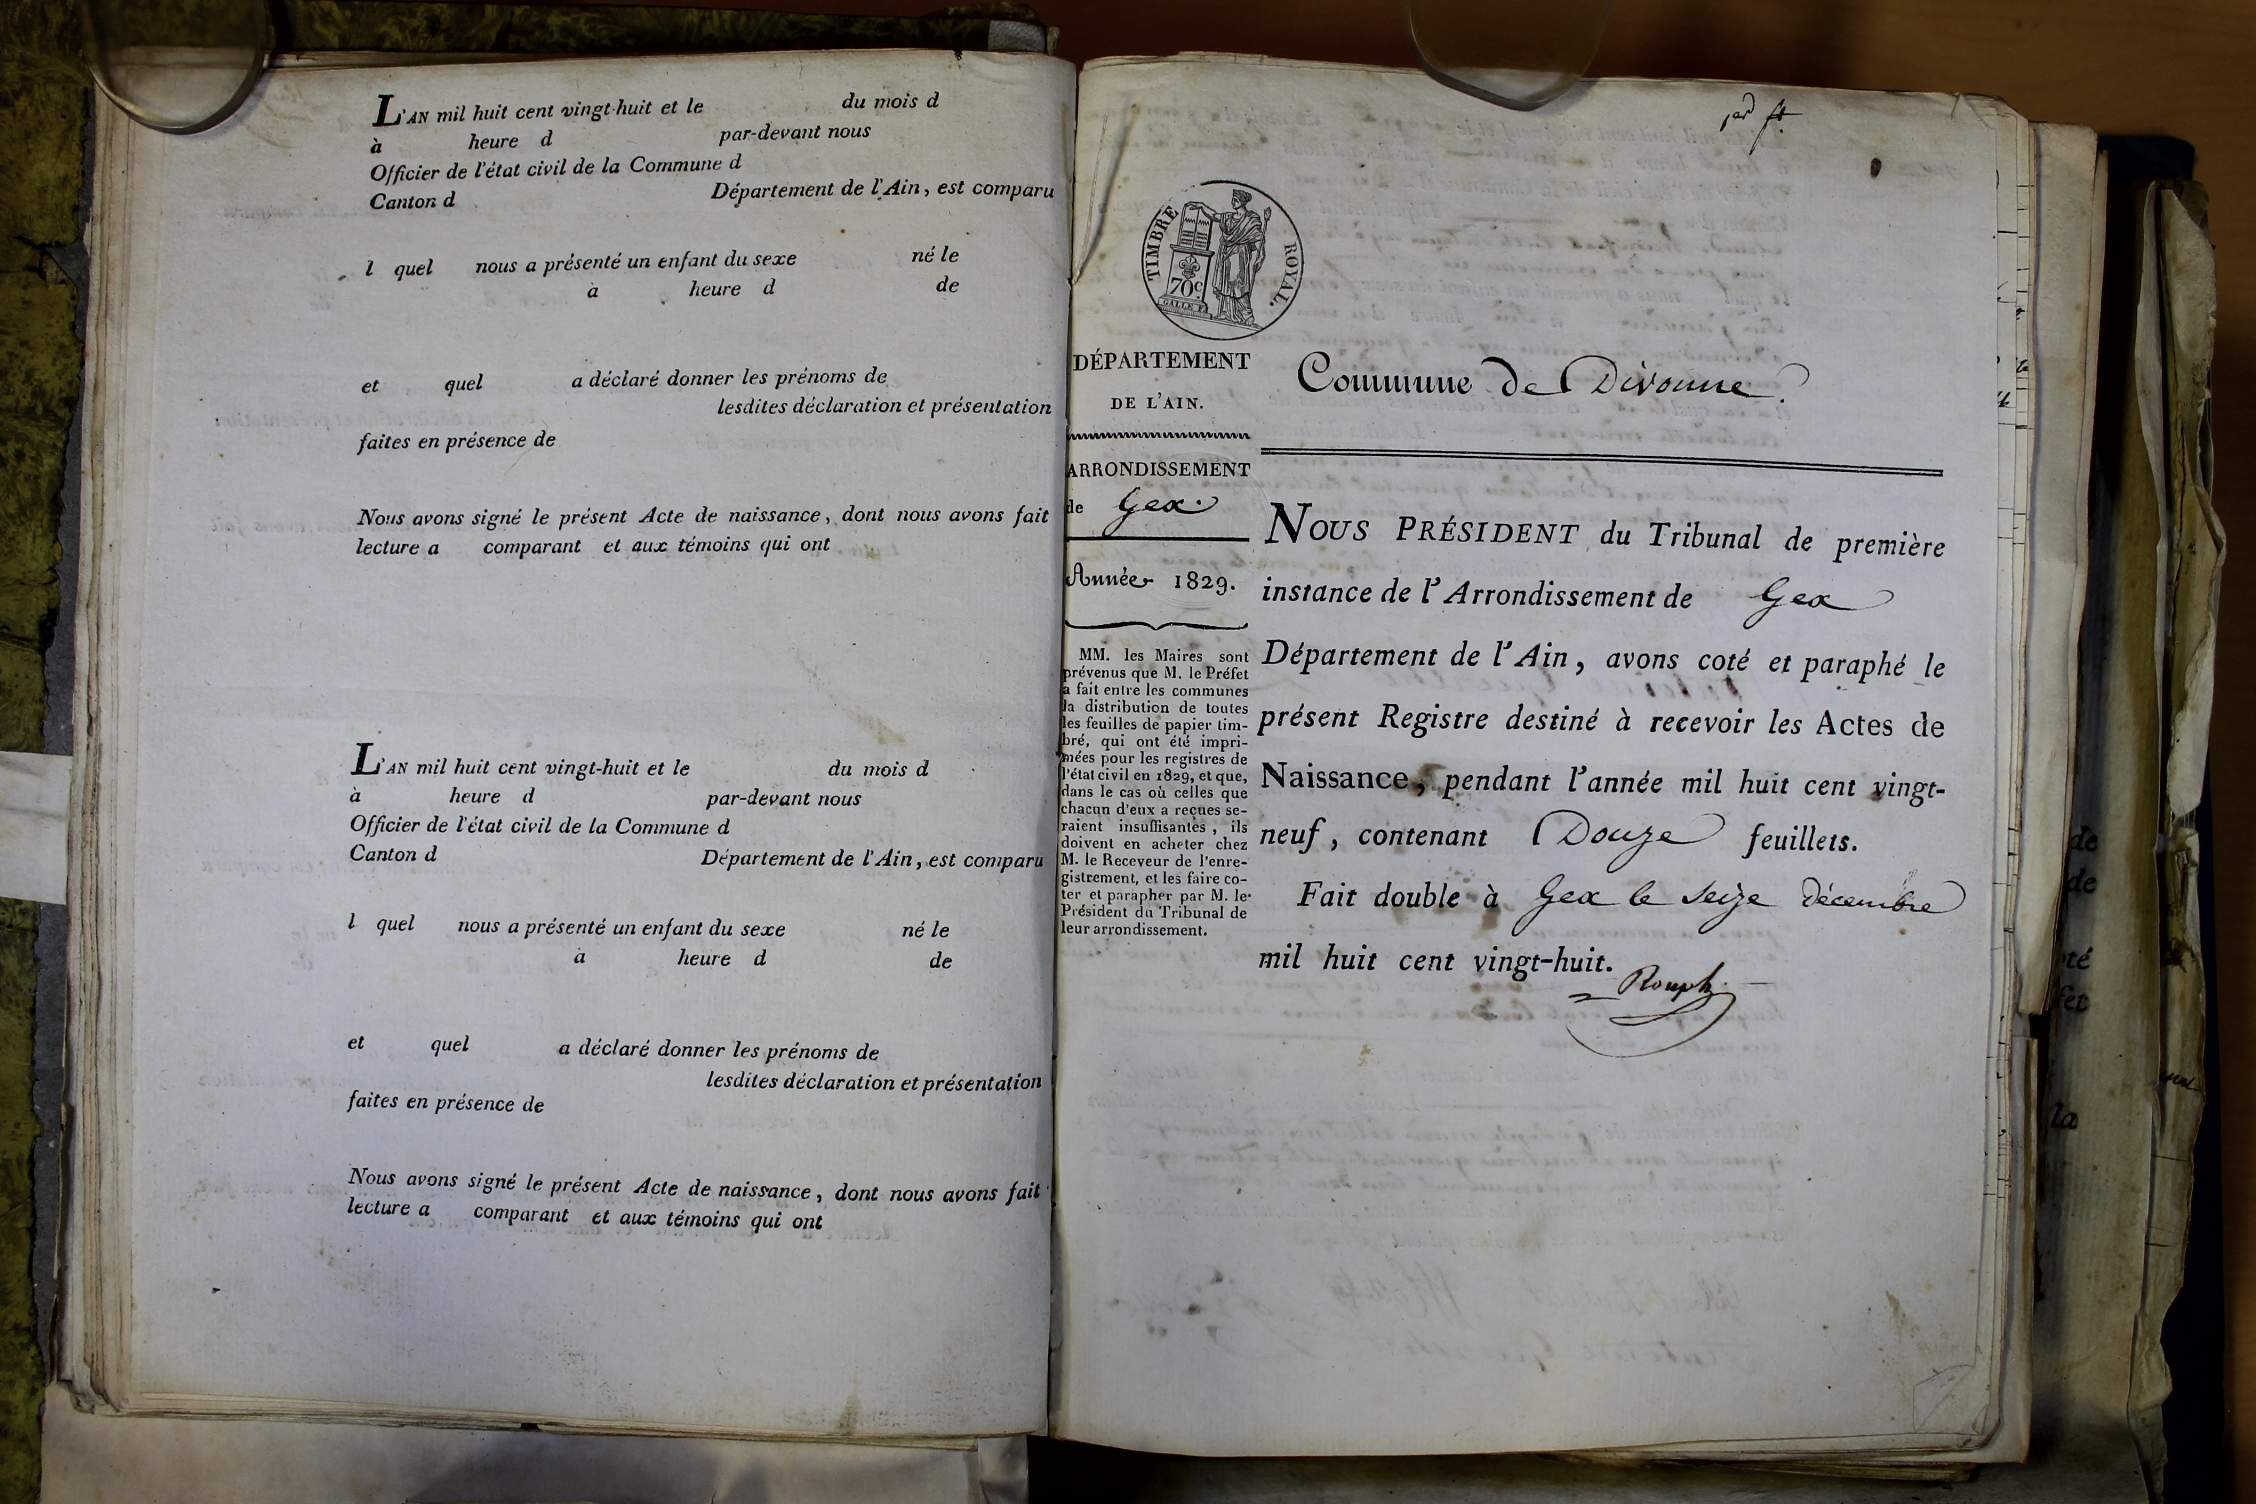 L'AN mil huit cent vingt-huit et le du mois d
à heure d par-devant nous
Officier de l'état civil de la Commune d
Canton d Département de l'Ain, est comparu
l quel nous a présenté un enfant du sexe né le
à heure d de
et quel a déclaré donner les prénoms de
lesdites déclaration et présentation
faites en présence de
Nous avons signé le présent Acte de naissance, dont nous avons fait
lecture a comparant et aux témoins qui ont
L'AN mil huit cent vingt-huit et le du mois d
à heure d par-devant nous
Officier de l'état civil de la Commune d
Canton d Département de l'Ain, est comparu
l quel nous a présenté un enfant du sexe né le
à heure d de
et quel a déclaré donner les prénoms de
lesdites déclaration et présentation
faites en présence de
Nous avons signé le présent Acte de naissance, dont nous avons fait
lecture a comparant et aux témoins qui ont
TIMBRE ROYAL.
70c.
DÉPARTEMENT
DE L'AIN.
ARRONDISSEMENT
de Gex
Année 1829.
MM. les Maires sont
prévenus que M. le Préfet
a fait entre les communes
la distribution de toutes
les feuilles de papier tim-
bré, qui ont été impri-
mées pour les registres de
l'état civil en 1829, et que,
dans le cas où celles que
chacun d'eux a reçues se-
raient insuffisantes, ils
doivent en acheter chez
M. le Receveur de l'enre-
gistrement, et les faire co-
ter et parapher par M. le
Président du Tribunal de
leur arrondissement.
Commune de Divonne.
NOUS PRÉSIDENT du Tribunal de première
instance de l'Arrondissement de Gex
Département de l'Ain, avons coté et paraphé le
présent Registre destiné à recevoir les Actes de
Naissance, pendant l'année mil huit cent vingt-
neuf, contenant Douze feuillets.
Fait double à Gex le seize décembre
mil huit cent vingt-huit.
de
de
la